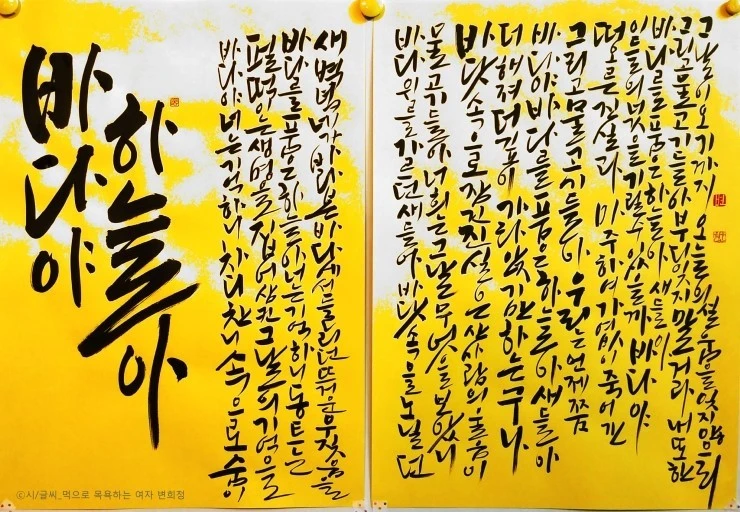 바다야
하늘아
바다야 너는 기억하니 차디찬 니 속으로 숨어
펄떡이는 생명을 집어삼킨 그날의 기억을
바다를 품은 하늘아 너는 기억하니 동트는
새벽녘 네가 바라본 바다에서 들리던 뜨거운
바다 위를 가르던 새들아 바닷속을 노닐던
물고기들아 너희는 그날 무엇을 보았니
바닷속으로 잠긴 진실은 산 사람의
더해져 더 깊이 가라앉기만 하는구나
바다야 바다를 품은 하늘아 새들아
그리고 물고기들아 우리는 언제쯤
떠오른 진실과 마주하여 가엾이 죽어간
임들의 넋을 기릴 수 있을까 바다야
바다를 품은 하늘아 새들아
그리고 물고기들아 부디 잊지 말거라 내 또한
그날이 오기까지 오늘의 설움을 잊지 않으리
ⓒ시/글씨_먹으로 목욕하는 여자 변희정